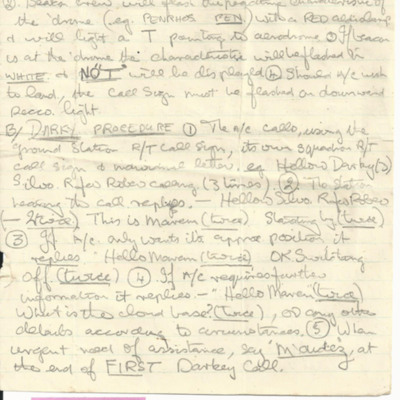 2. Beacon crew will flash the pundit characteristic of
the 'drome (eg. PENRHOS PEN) with a RED aldis lamp
and will light a T pointing to aerodrome 3 If beacon
is at the 'drome the characteristic will be flashed in
WHITE & NOT will be displayed 4 Should a/c wish
to land, the Call Sign must be flashed on downward
recco. light.
B/ DARKY PROCEDURE 1 The a/c calls, using the
ground Station R/T Call sign, its own squadron R/T
call sign & individual letter. eg Hellow Darky(3)
Silvo Rufus Robeo calling (3 times) 2 The station
hearing the call replies. - Hellow Silvo Rufus Robeo
(- twice) This is Maven (twice) Standing by (twice)
3 If a/c only wants its approx position it
replies "Hello Maven (twice) OK Switching
off (twice) 4 If a/c requires further
information it replies - "Hello Maven (twice)
What is the cloud base? (twice), or any other
details according to circumstances. 5 When
urgent need of assistance, say 'M'aidez, at
the end of FIRST Darkey Call.